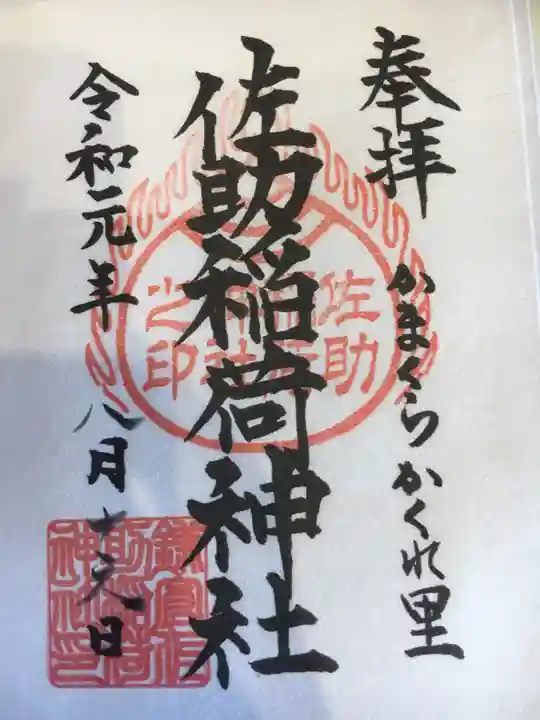 奉拝
かまくらかくれ里
佐助稲荷神社
佐助稲荷神社之印
令和元年八月十六日